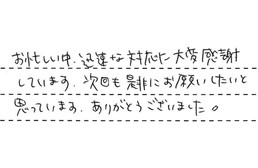 お忙しい中、迅速な対応に大変感謝
しています。次回も是非にお願いしたいと
思っています。ありがとうございました。